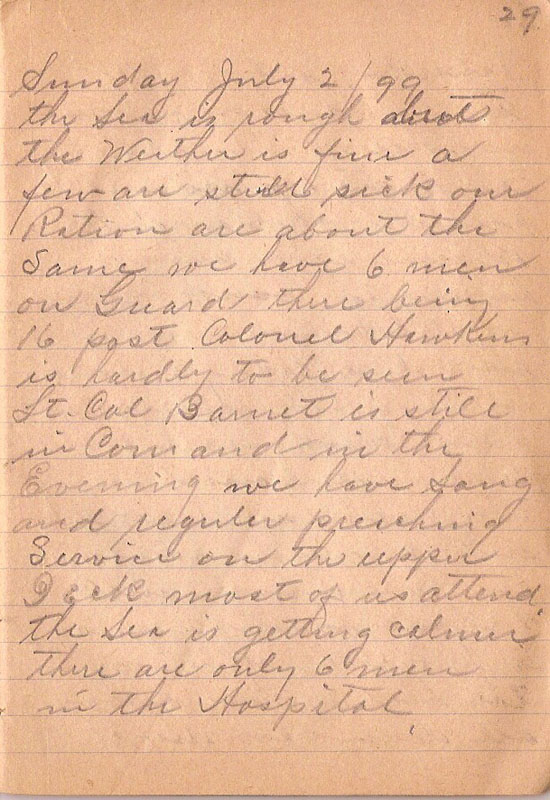 29
Sunday July 2/99
the Sea is rough about
the Werther is fine a
few are still sick our
Ration are about the
Same we have 6 men
on Guard there being
16 post Colonel Hawkins
is hardly to be seen
Lt. Col Barnet is still
in Comand in the
Evening we have Song
and reguler preaching
Service on the upper
Deck most of us attend,
the Sea is getting calmer
there are only 6 men
in the Hospital